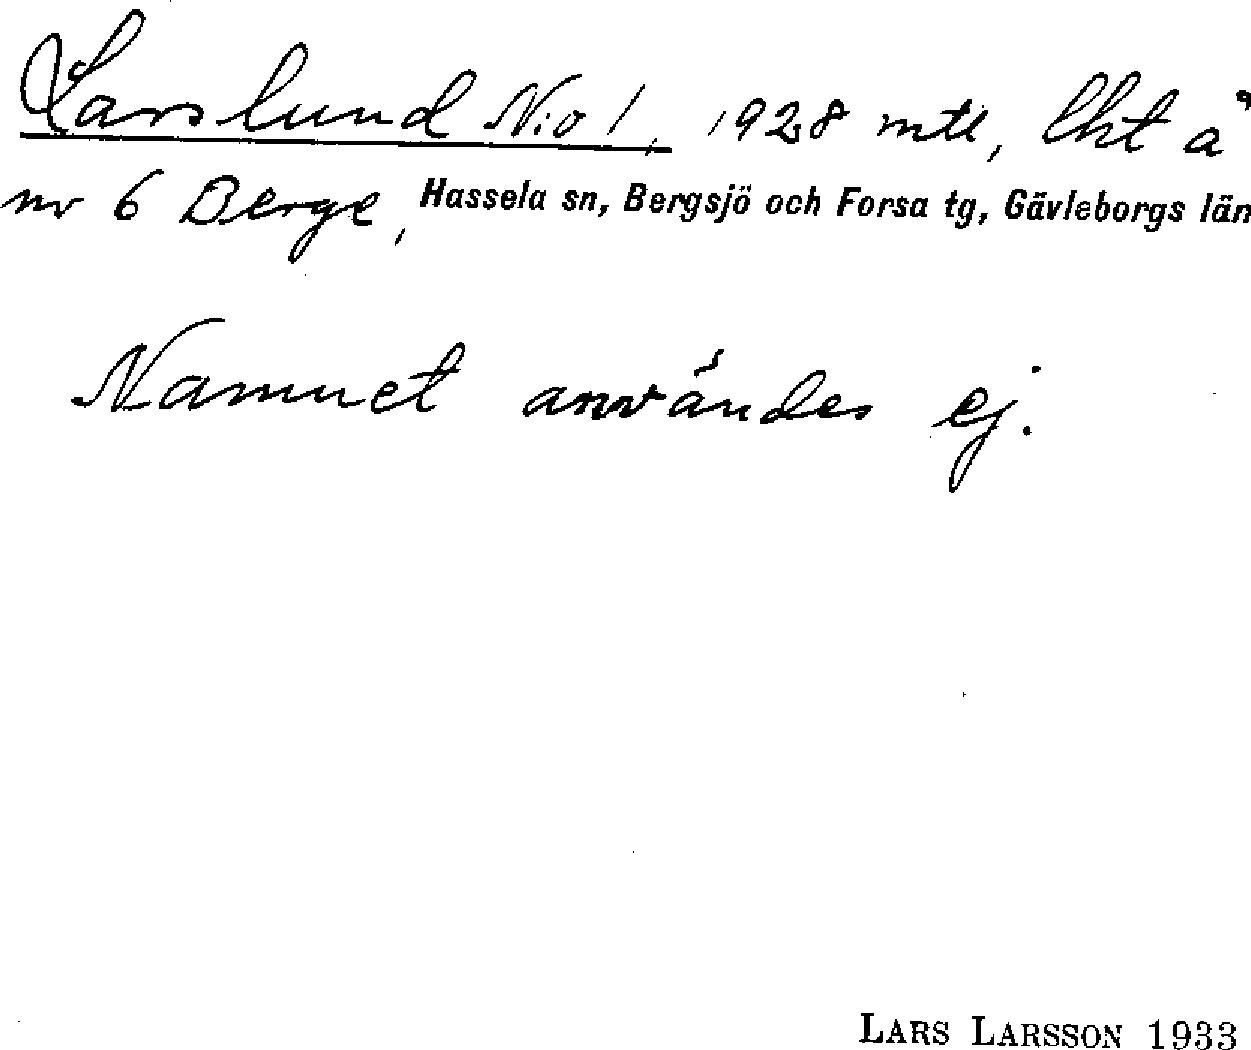 Larslund N:o 1, 1928 mtl, lht å
nr 6 Berge, Hassela sn, Bergsjö och Forsa tg, Gävleborgs län
Namnet användes ej.
LARS LARSSON 1933